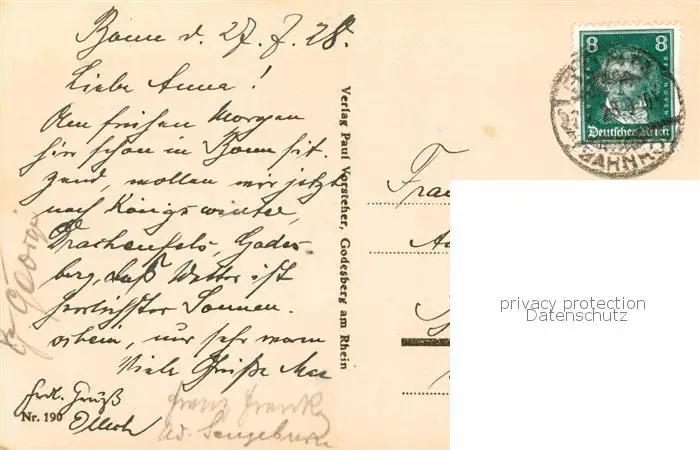 Bonn d. 27.7.28.
Liebe Anna!
Am frühen Morgen
hier schon in Bonn sit-
zend, wollen wir jetzt
nach Königswinter,
Drachenfels, Godes-
berg, das Wetter ist
herrlichster Sonnen-
schein, nur sehr warm
Viele Grüße
frdl. Gruß
Nr. 190
Georg
Franz
Verlag Paul Vorsteher, Godesberg am Rhein
8 8
BEETHOVEN
Deutsches Reich
BAHNH
privacy protection
Datenschutz